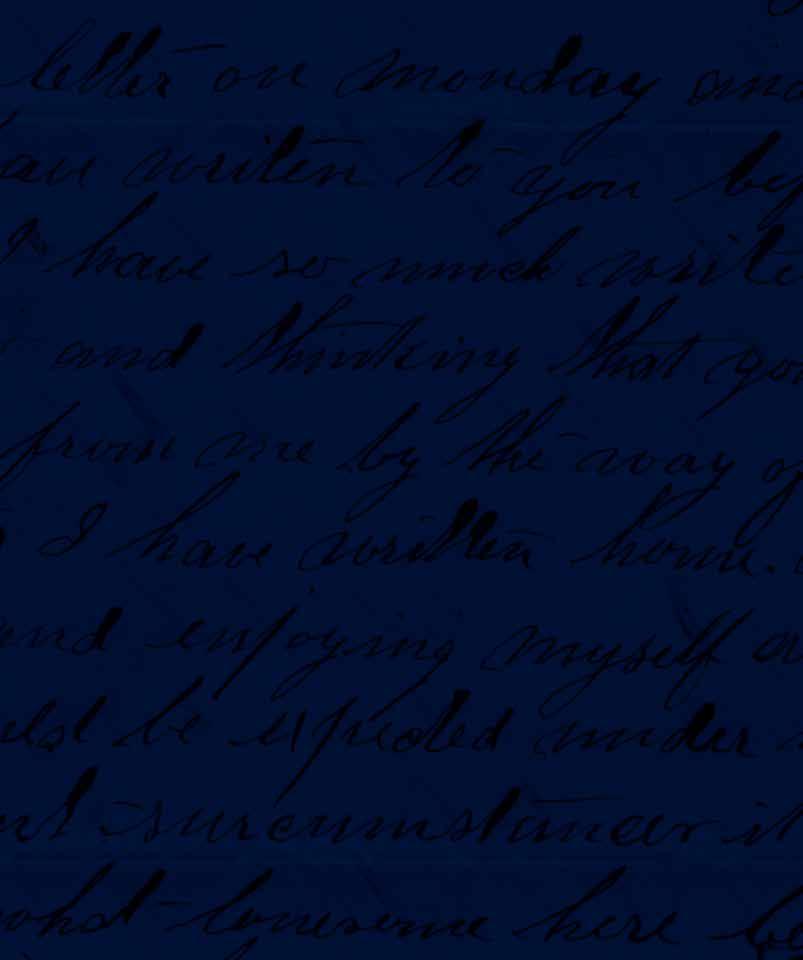 letter on monday and
writen to you by
I have so much write
and thinking that yo
from me by the way of
I have written home.
and enjoying myself a
be expected under
surcumstances it
what lonesome here be